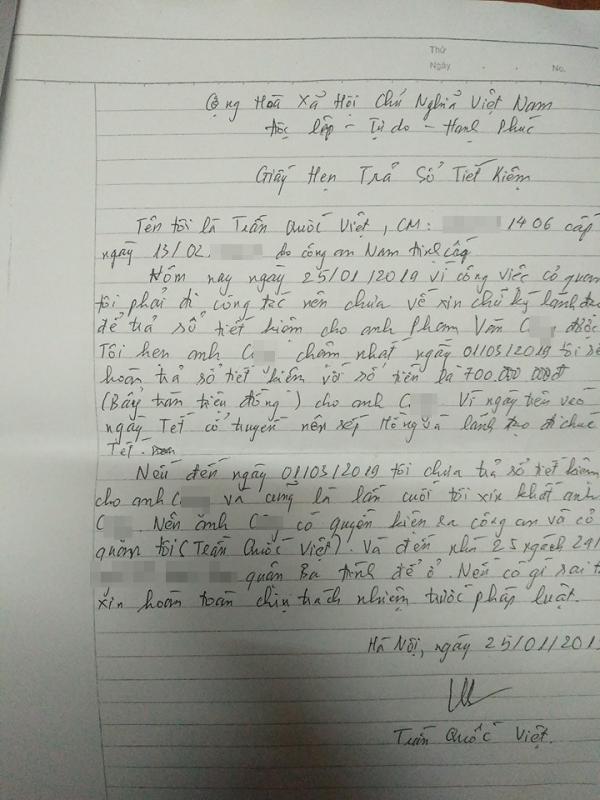 Thứ
Ngày . . No.
Cộng Hoà Xã Hội Chủ Nghĩa Việt Nam
Độc lập - Tự do - Hạnh Phúc
Giấy Hẹn Trả Sổ Tiết Kiệm
Tên tôi là Trần Quốc Việt, CM: 1406 cấp
ngày 13/02. do công an Nam Định cấp
Hôm nay ngày 25/01/2019 vì công việc cơ quan
tôi phải đi công tác nên chưa về xin chữ ký lãnh đạo
để trả sổ tiết kiệm cho anh Phạm Văn C được
Tôi hẹn anh C chậm nhất ngày 01/03/2019 tôi sẽ
hoàn trả sổ tiết kiệm với số tiền là 700.000 000đ
(Bẩy trăm triệu đồng) cho anh C. Vì ngày
ngày Tết cổ truyền nên sếp Hồng và lãnh đạo đi chúc
Tết.
Nếu đến ngày 01/03/2019 tôi chưa trả sổ tiết kiệm
cho anh C và cũng là lần cuối tôi xin khất anh
C. Nên anh C có quyền kiện ra công an và cơ
quan tôi (Trần Quốc Việt). Và đến nhà 25 ngách 291
quận Ba Đình để ở. Nếu có gì sai t
xin hoàn toàn chịu trách nhiệm trước pháp luật.
Hà Nội, ngày 25/01/201
Trần Quốc Việt.